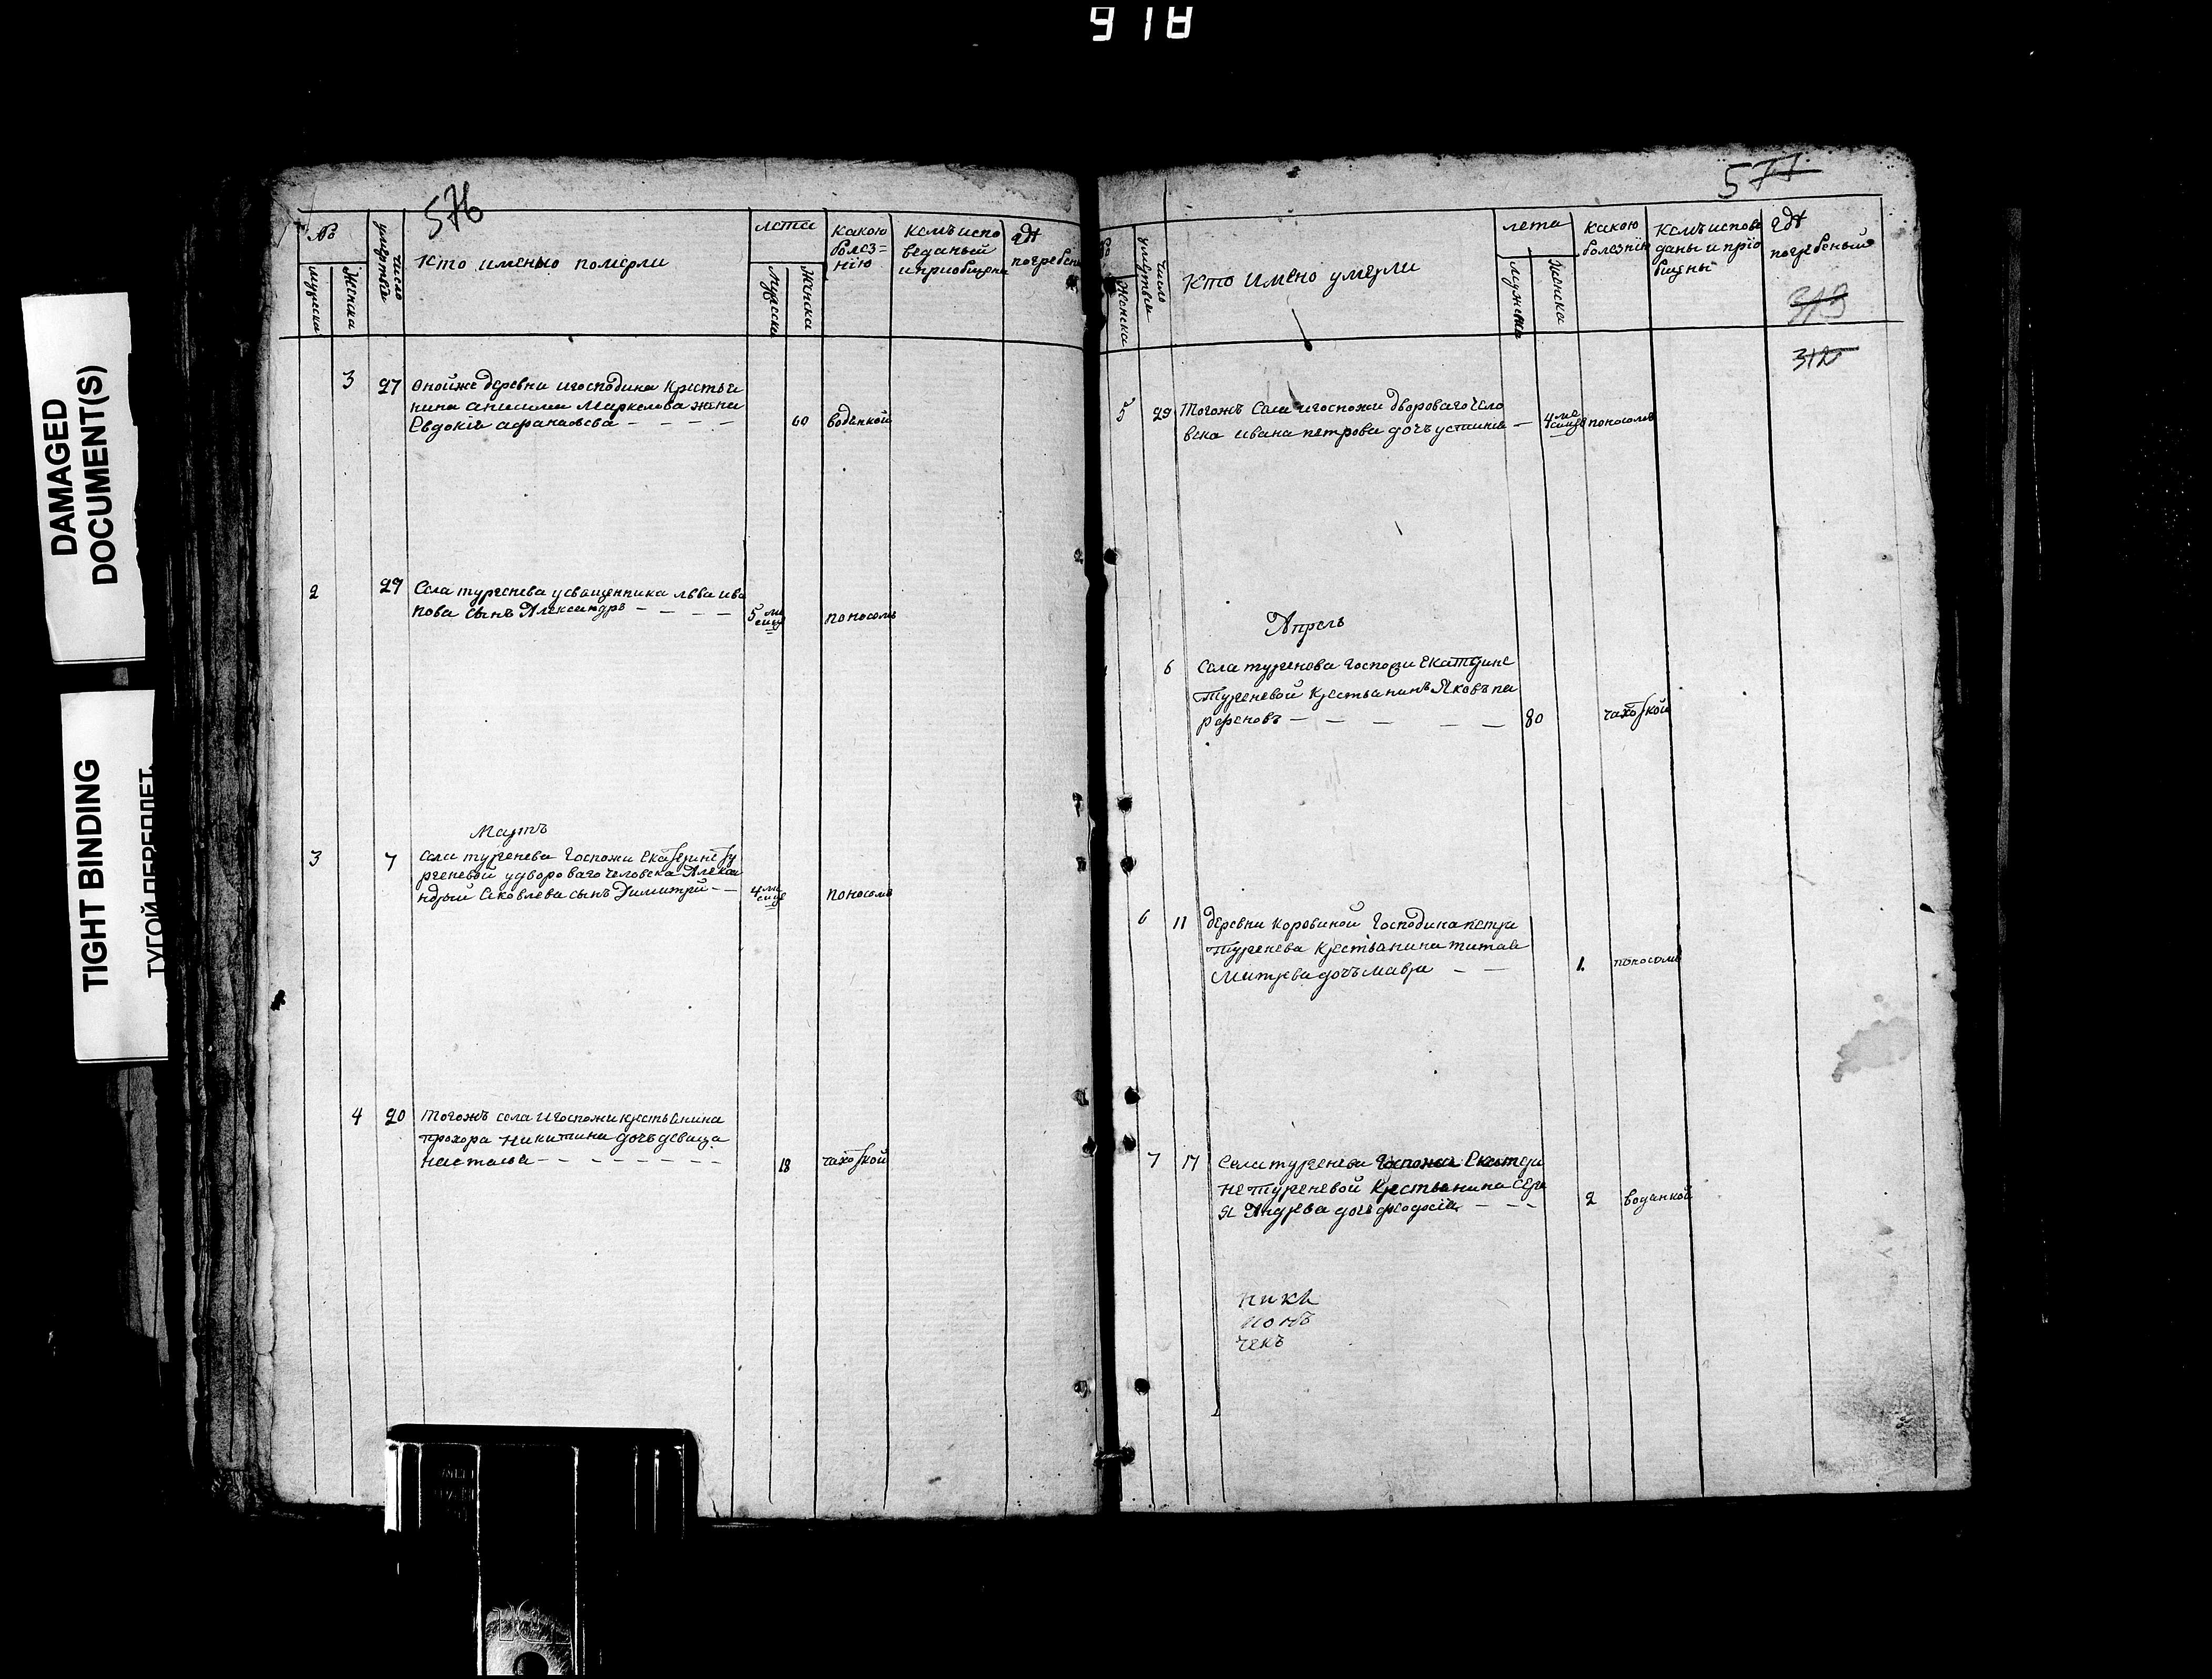 918
DAMAGED
DOCUMENT(S)
TIGHT BINDING
ТУГОЙ ПЕРЕПЛЕТ
576
№
мужеска
Женска
число
умертвіи
Кто имено померли
лета
мужеска
Женска
какою
болез=
нію
кемъ испо
веданый
и приобщены
гдѣ
погребены
3 27 Оной же деревни и господина крестьа
нина анисима Маркелова жена
Евдокіа афанасьева – – – – 60 воденкой
2 27 Села тургенева у священника льва ива
нова сынъ Александръ – – – – 5 ме
сице поносомъ
Мартъ
3 7 Села тургенева Госпожи Екатерине ту
ргеневой у двороваго человека Алекса
ндры Яковлева сынъ Димитрій – – 4 ме
сице поносомъ
4 20 Тогожъ села и Госпожи крестьянина
прохора Никитина дочь девица
Наталья – – – – – – – 18 чахоткой
577
Женска
число
умертвіи
Кто Имено умерли
лета
мужска
Женска
какою
болезнію
кемъ испове
даны и пріо
бщены
гдѣ
погребеный
313
312
5 29 Тогожъ Села и госпожи двороваго чело
века ивана петрова дочъ устинья – 4 ме
сице поносомъ
Апрель
6 Села тургенева Госпожи Екатерине
Тургеневой Крестьанинъ Яковъ па
рфеновъ – – – – – 80 чахоткой
6 11 деревни коровиной Господина петра
Тургенева Крестьанина тита
Митрева дочъ мавра – – 1. поносомъ
7 17 Села тургенева Госпожи Екатери
не Тургеневой Крестьанина Серге
я Андрева дочь феодосіа – – – 2 воданкой